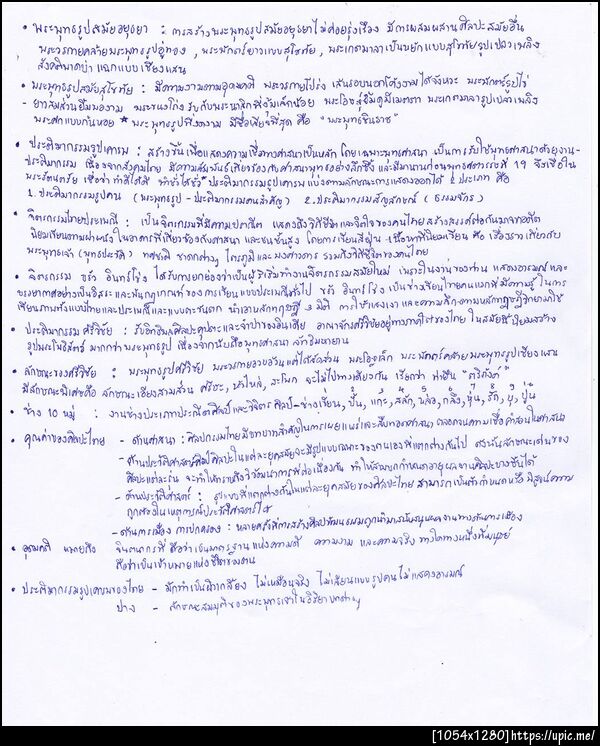 • พระพุทธรูปสมัยอยุธยา : การสร้างพระพุทธรูปสมัยอยุธยาไม่ค่อยรุ่งเรือง มีการผสมผสานศิลปะสมัยอื่น
พระวรกายคล้ายพระพุทธรูปอู่ทอง , พระพักตร์ยาวแบบสุโขทัย , พระเกตุมาลาเป็นหยักแบบสุโขทัยรูปเปลวเพลิง
สังฆาฏิพาดบ่า แฉกแบบเชียงแสน
• พระพุทธรูปสมัยสุโขทัย : มีความงามตามอุดมคติ พระวรกายโปร่ง เส้นรอบนอกโค้งงามได้จังหวะ พระพักตร์รูปไข่
- ยาวสมส่วนยิ้มพองาม พระขนงโก่ง รับกับพระนาสิกที่งุ้มเล็กน้อย พระโอษฐ์อิ่มดูมีเมตตา พระเกตุมาลารูปเปลวเพลิง
พระศกแบบก้นหอย * พระพุทธรูปที่งดงาม มีชื่อเสียงที่สุด คือ " พระพุทธชินราช "
• ประติมากรรมรูปเคารพ : สร้างขึ้นเพื่อแสดงความเชื่อทางศาสนาเป็นหลัก โดยเฉพาะพุทธศาสนา เป็นการรับใช้พุทธศาสนาด้วยงาน-
ประติมากรรม เนื่องจากสังคมไทย มีความสัมพันธ์เกี่ยวข้องกับศาสนาพุทธอย่างลึกซึ้ง และมีมานานก่อนพุทธศตวรรษที่ 19 จึงเชื่อใน
พระรัตนตรัย เชื่อว่า ทำดีได้ดี ทำชั่วได้ชั่ว ประติมากรรมรูปเคารพ แบ่งตามลักษณะการแสดงออกได้ 2 ประเภท คือ
1. ประติมากรรมรูปคน (พระพุทธรูป - ประติมากรรมคนสำคัญ) 2. ประติมากรรมสัญลักษณ์ ( ธรรมจักร )
• จิตรกรรมไทยประเพณี : เป็นจิตรกรรมที่มีความประณีต แสดงถึงวิถีชีวิตและจิตใจของคนไทย สร้างสรรค์ต่อกันมาจากอดีต
นิยมเขียนตามฝาผนังในอาคารที่เกี่ยวข้องกับศาสนา และชนชั้นสูง โดยการเขียนสีฝุ่น เนื้อหาที่นิยมเขียน คือ เรื่องราวเกี่ยวกับ
พระพุทธเจ้า (พุทธประวัติ) ทศชาติ ชาดกต่างๆ ไตรภูมิ และ พงศาวดาร รวมถึงวิถีชีวิตของคนไทย
• จิตรกรรม ขรัว อินทร์โข่ง ได้รับการยกย่องว่าเป็นผู้ริเริ่มทำงานจิตรกรรมสมัยใหม่ เพราะในงานของท่าน แสดงอารมณ์ และ
บรรยากาศอย่างเป็นอิสระ และพ้นกฎเกณฑ์ ของการเขียนแบบประเพณีทั่วไป ขรัว อินทร์โข่ง เป็นช่างเขียนไทยคนแรกที่มีความรู้ในการ
เขียนภาพทั้งแบบไทยและประเพณีและแบบตะวันตก นำเอาหลักทฤษฎี 3 มิติ การใช้แสงเงา และความลึกตามหลักทฤษฎีวิทยามาใช้
• ประติมากรรม ศรีวิชัย : รับอิทธิพลศิลปะคุปตะ และจำปาของอินเดีย อาณาจักรศรีวิชัยอยู่ทางภาคใต้ของไทย ในสมัยนี้นิยมสร้าง
รูปพระโพธิสัตว์ มากกว่า พระพุทธรูป เนื่องจากนับถือพุทธศาสนา ลัทธิมหายาน
• ลักษณะของศรีวิชัย : พระพุทธรูปศรีวิชัย พระวรกายอวบอ้วนแต่ได้สัดส่วน พระโอษฐ์เล็ก พระพักตร์คล้ายพระพุทธรูปเชียงแสน
มีลักษณะพิเศษคือ ลักษณะเอียงสามส่วน ศรีษะ, หัวไหล่, สะโพก จะไม่ไปทางเดียวกัน เรียกว่า ท่ายืน "ตริภังค์"
• ช่าง 10 หมู่ : งานช่างประเภทประณีตศิลป์ และวิจิตรศิลป์ - ช่างเขียน, ปั้น, แกะ, สลัก, หล่อ, กลึง, หุ่น, รัก, บุ, ปูน
• คุณค่าของศิลปะไทย - ด้านศาสนา : ศิลปกรรมไทยมีบทบาทสำคัญในการเผยแพร่และสืบทอดศาสนา ตลอดจนความเชื่อ คำสอนในศาสนา
- ด้านประวัติศาสตร์ศิลป์ ศิลปะในแต่ละยุคสมัยจะมีรูปแบบเฉพาะของตนเองที่แตกต่างกันไป
ศิลปะแต่ละรุ่น จะทำให้ทราบถึงวิวัฒนาการที่ต่อเนื่องกัน ทำให้สามารถกำหนดอายุผลงานศิลปะบางชิ้นได้
- ด้านประวัติศาสตร์ : รูปแบบที่แตกต่างกันในแต่ละยุคสมัยของศิลปะไทย สามารถเป็นตัวกำหนดหรือพิสูจน์ความ
ถูกต้องในเหตุการณ์ประวัติศาสตร์ได้
- ด้านการเมือง การปกครอง : หลายครั้งที่การสร้างศิลปวัฒนธรรมถูกนำมาสนับสนุนผลงานทางด้านการเมือง
• อุดมคติ หมายถึง จินตนาการที่ถือว่าเป็นมาตรฐานแห่งความดี ความงาม และความจริง ทางใดทางหนึ่งที่มนุษย์
ถือว่าเป็นเป้าหมายแห่งชีวิตของตน
• ประติมากรรมรูปเคารพของไทย - มักทำเป็นผิวเกลี้ยง ไม่เหมือนจริง ไม่เลียนแบบรูปคน ไม่แสดงอารมณ์
ปาง - ลักษณะสมมุติของพระพุทธเจ้าในอิริยาบถต่างๆ
[1054x1280]https://upic.me/